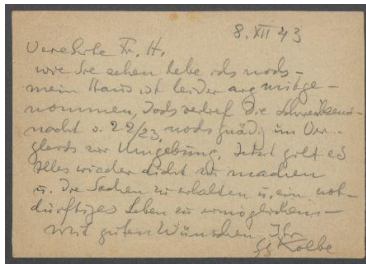 8. XII 43
Verehrte Fr. H.
wie Sie sehen lebe ich noch –
mein Haus ist leider arg mitge-
nommen, doch verlief die Schreckens-
nacht v. 22/23 noch gnädig im Ver-
gleich zur Umgebung. Jetzt gilt es
alles wieder dicht zu machen
u. die Sachen zu erhalten u. ein not-
dürftiges Leben zu ermöglichen –
mit guten Wünschen Ihr
Kolbe